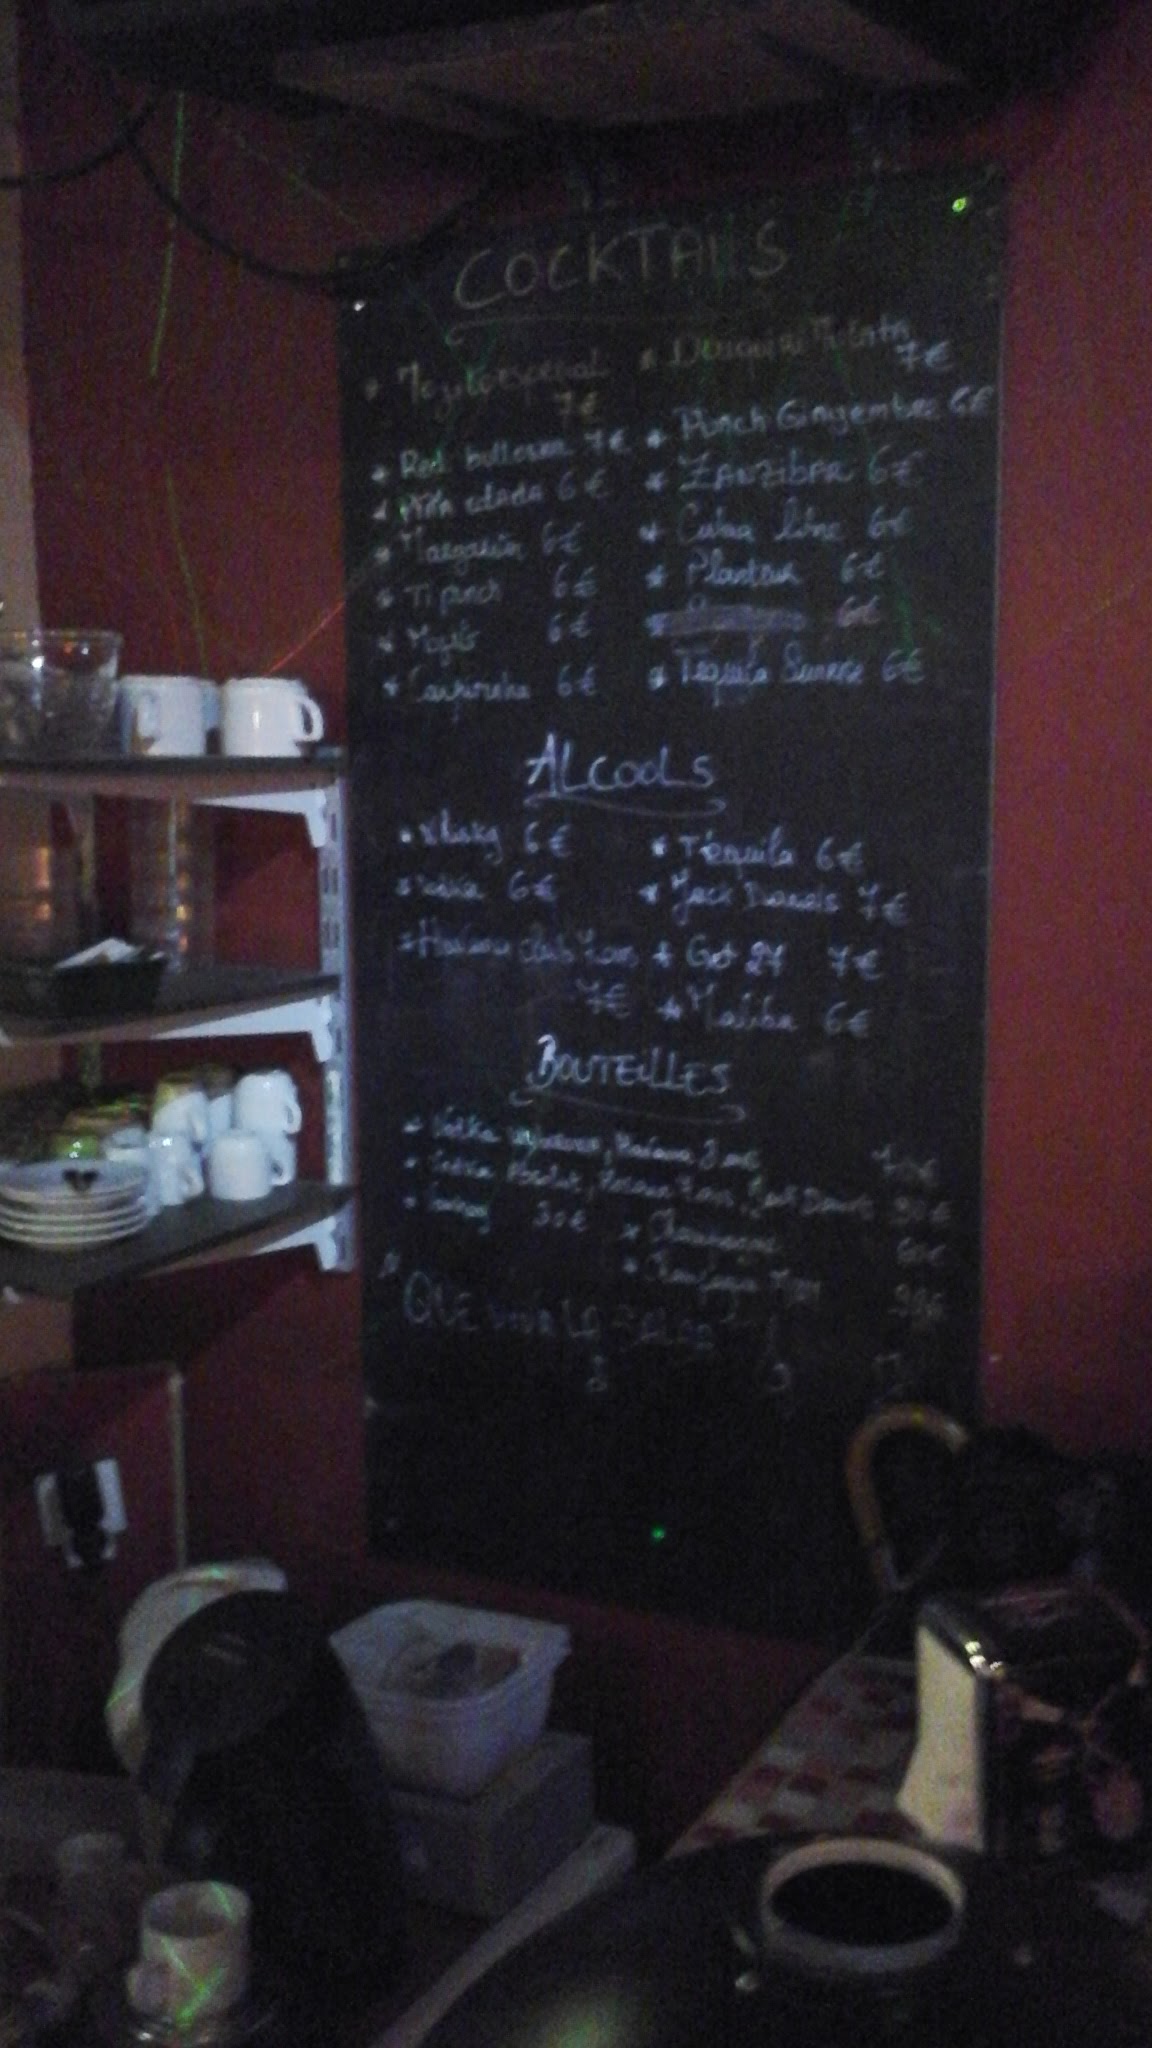 COCKTAILS
* Mojito special
7€
* Daiquiri
7€
* Red 7€
* Punch Gingembre 6€
* Piña colada 6€
* ZANZIBAR 6€
* Margarita 6€
* Cuba libre 6€
* Ti punch 6€
* Planteur 6€
* Mojito 6€
6€
* Caipirinha 6€
* Téquila Sunrise 6€
ALCOOLS
* Whisky 6€
* Téquila 6€
* Vodka 6€
* Jack Daniels 7€
* Havana club 7ans
7€
* Get 27 7€
* Malibu 6€
BOUTEILLES
* Vodka , Havana 3 ans
* Vodka Absolut, Havana 7ans, Jack Daniels 90€
* 30€
* Champagne 60€
* Champagne 90€
QUE VIVA LA SALSA